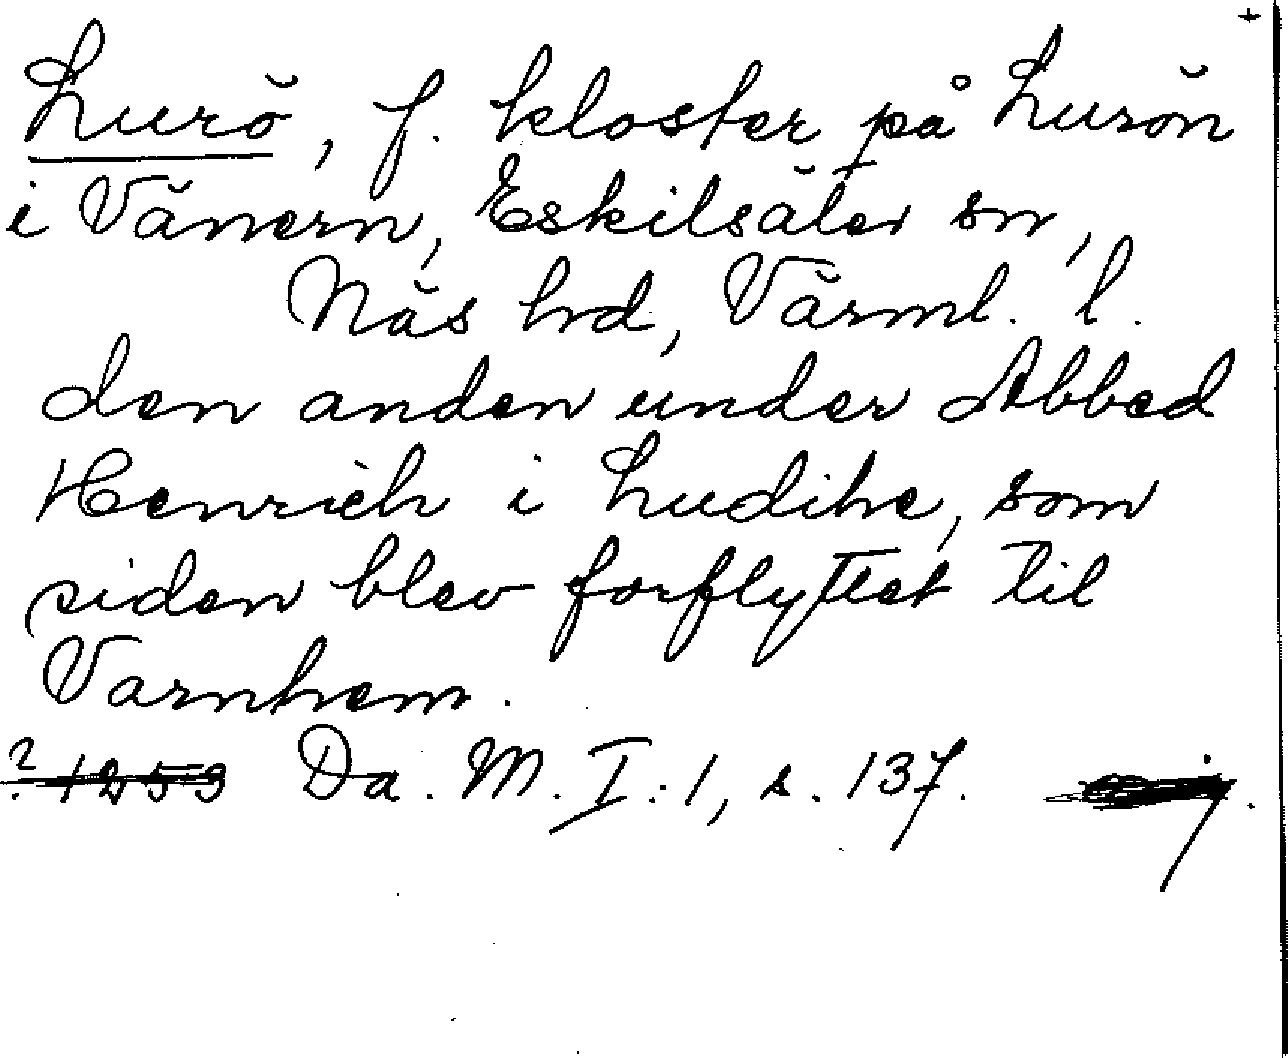 +
Lurö, f. kloster på Lurön
i Vänern, Eskilsäter sn,
Näs hd, Värml. l.
den anden under Abbed
Henrich i Ludihe, som
siden blev forflyttet til
Varnhem.
? 1253 Da. M. I: 1, s. 137.